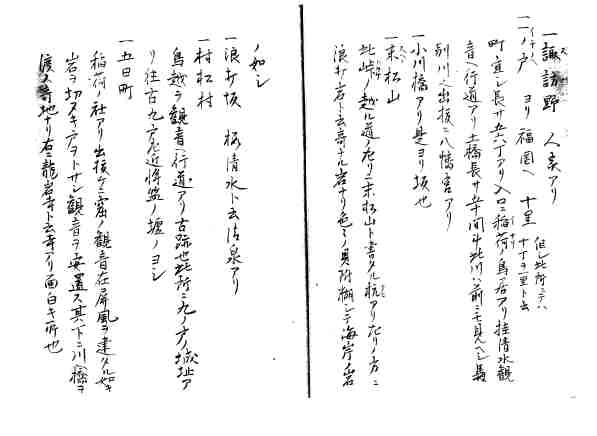 一諏訪野 人家アリ
一一ノ戸 ヨリ福岡ヘ 十里 但シ此所ニテハ
十丁ヲ一里ト云
町宜シ長サ五六丁アリ入口ニ稲荷ノ鳥居アリ桂清水観
音ヘ行道アリ土橋長サ五十間斗此川ハ前ニモ見ヘシ長
別川也出抜ニ八幡宮アリ
一小川橋アリ是ヨリ坂也
一末松山
此峠ノ越ル道ノ左リニ末松山ト書タル杭アリ右リノ方ニ
浪打ノ岩ト云奇ナル岩ナリ色々ノ貝附潮シテ海岸ノ岩
ノ如シ
一浪打坂 桜清水ト云清泉アリ
一村松村
鳥越ヲ観音ヘ行道アリ古跡也此所ニ九ノ戸ノ城址ア
リ往古九ノ戸左近将監ノ壇ノヨシ
一五日町
稲荷ノ社アリ出抜ケニ窟ノ観音在屏風ヲ建タル如キ
岩ヲ切ヌキアヲトサシ観音ヲ安置ス其ノ下ニ川ヘ橋ヲ
渡ス奇地ナリ右ニ龍岩寺ト云寺アリ面白キ所也